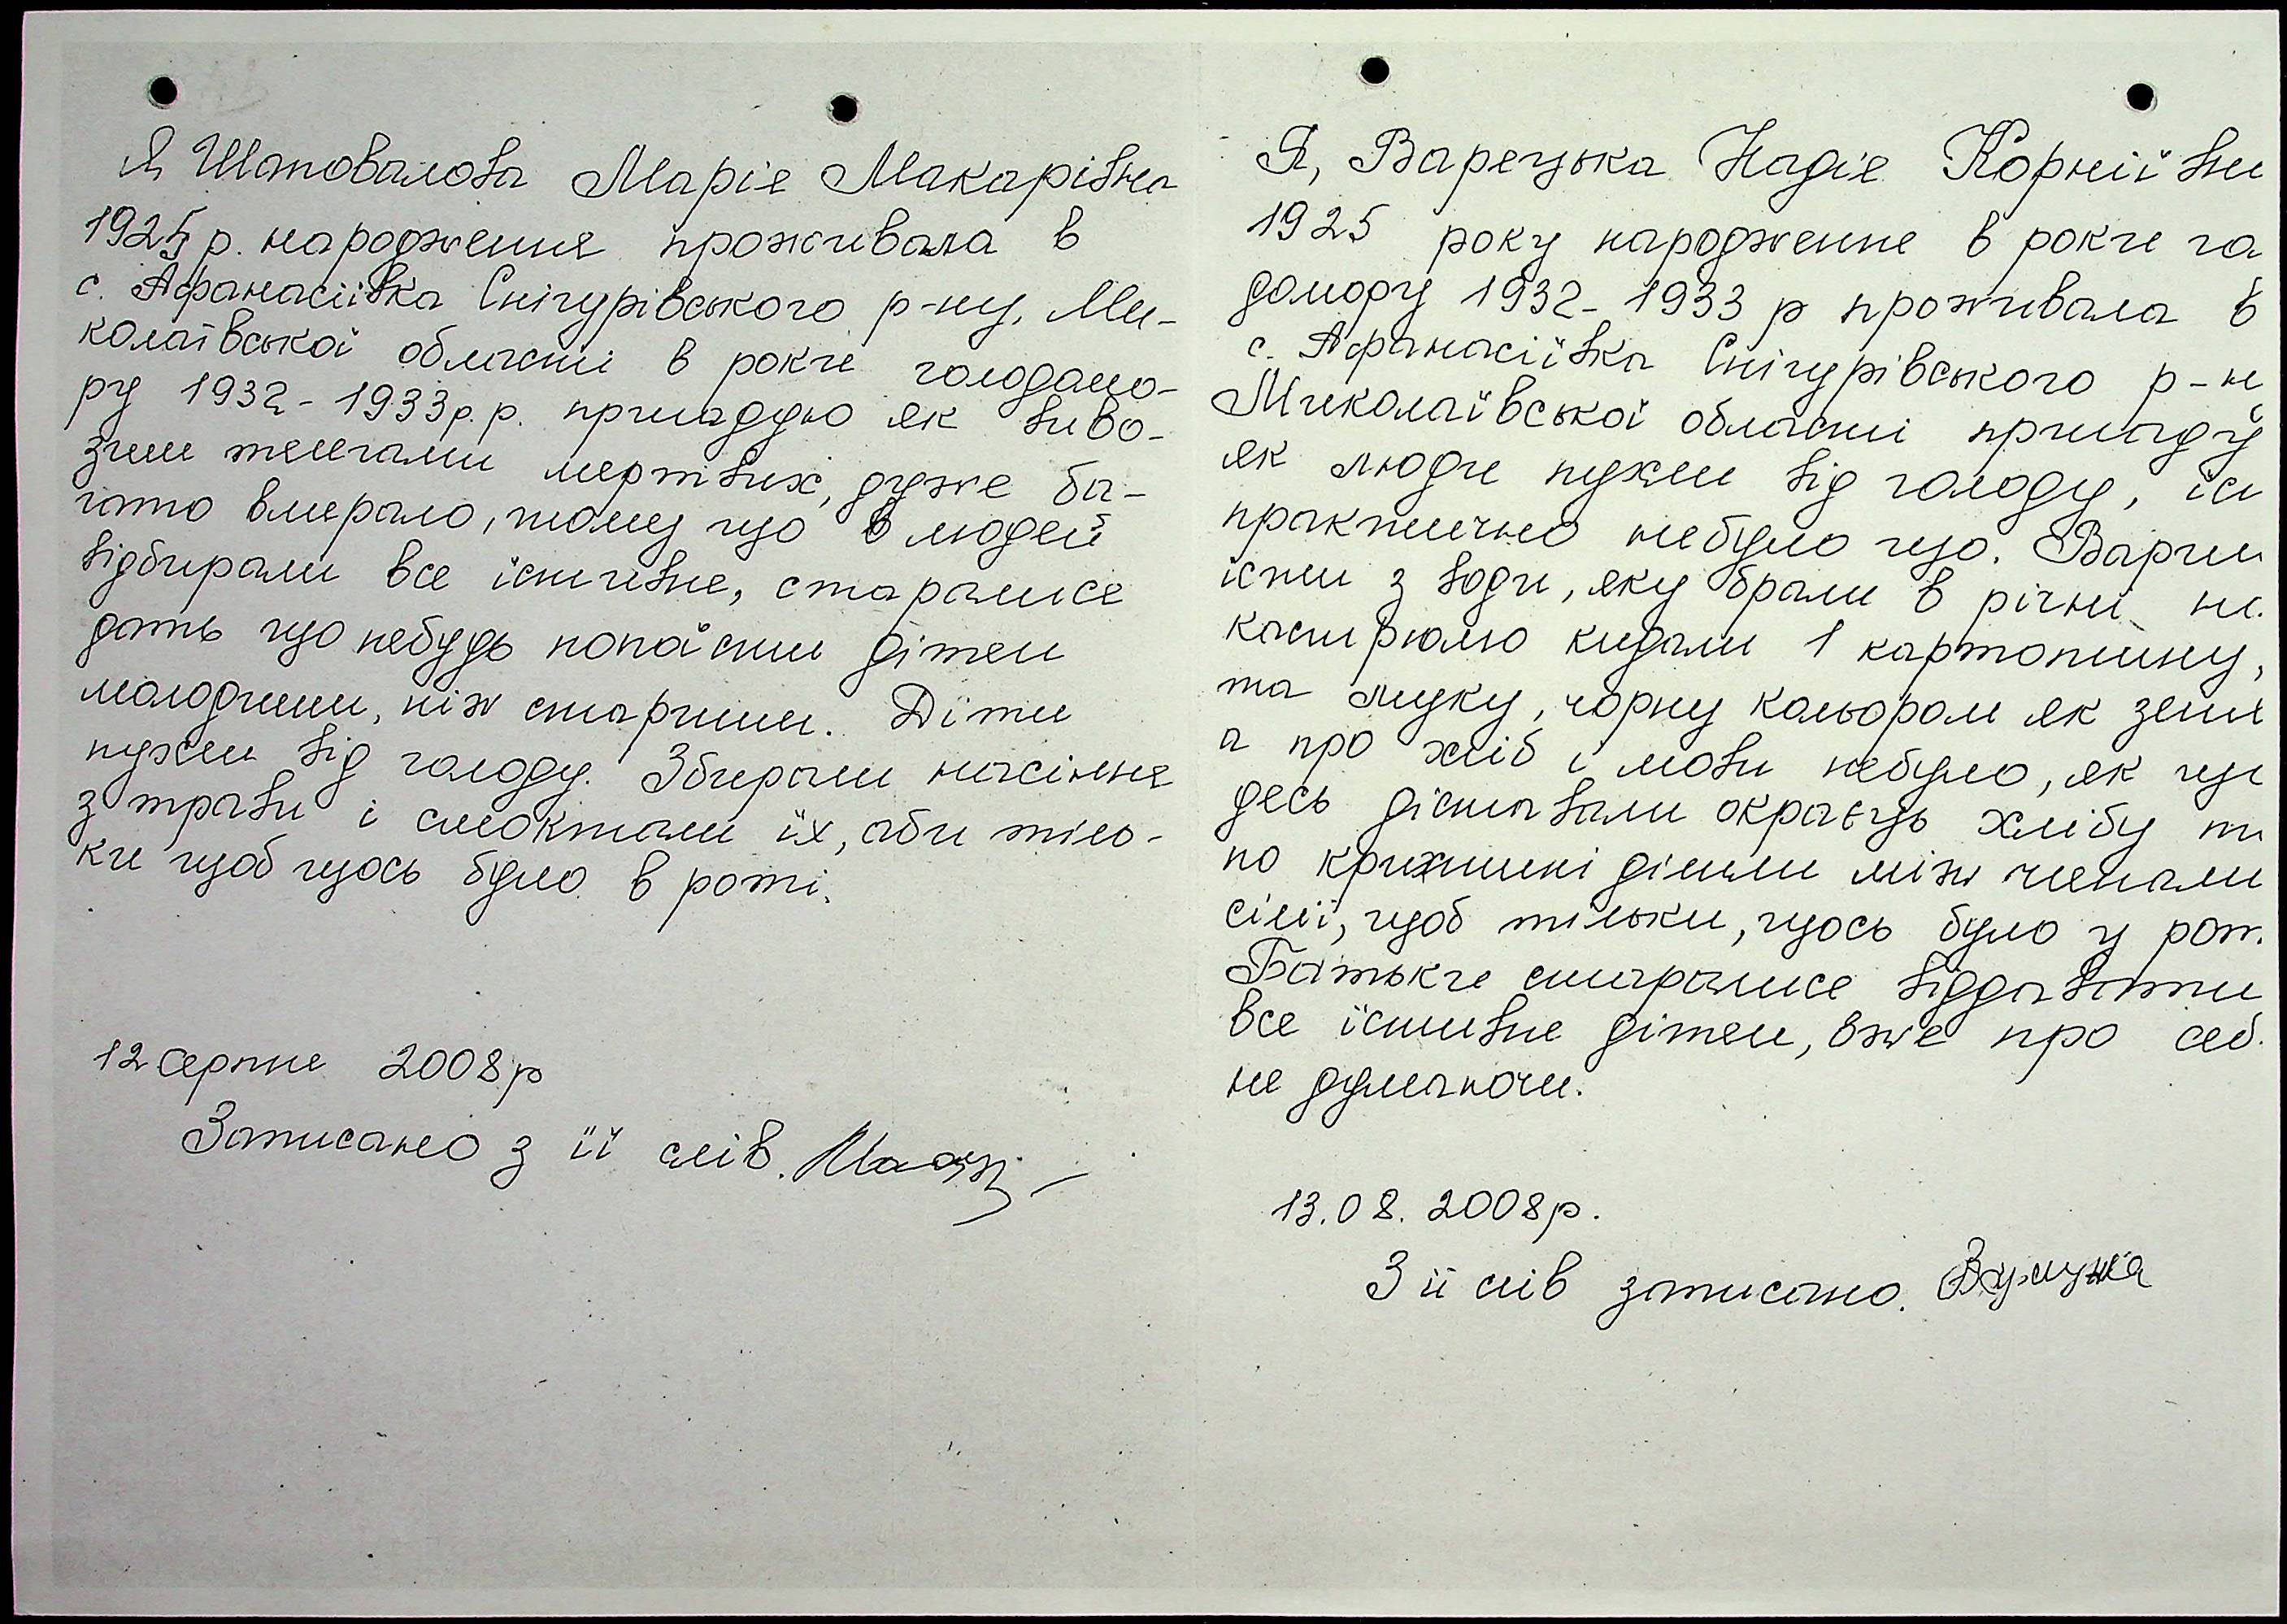 Я Шаповалова Марія Макарівна
1925 р. народження проживала в
с. Афанасіївка Снігурівського р-ну, Ми-
колаївської області в роки голодомо-
ру 1932-1933р.р. пригадую як виво-
зили тєлєгами мертвих, дуже ба-
гато вмерало, тому що в людей
відбирали все їстивне, старалися
дать що небудь попоїсти дітям
молодшим, ніж старшим. Діти
пухли від голоду. Збирали насіння
з трави і смоктали їх, аби тіль-
ки щоб щось було в роті.
12 серпня 2008р
Записано з її слів.
Я, Варецька Надія Корніївн
1925 року народження в роки го
домору 1932-1933 р проживала в
с. Афанасіївка Снігурівського р-н
Миколаївської області пригаду
як люди пухли від голоду, їс
практично небуло що. Варили
їсти з води, яку брали в річні на
кострюлю кидали 1 картоплину,
та муку, чорну кольором як земл
а про хліб і мови небуло, як що
десь діставали окраєць хлібу т
по крихтині ділили між членами
сімї, щоб тільки, щось було у рот.
Батьки старалися віддавати
все їстивне дітям, вже про себ.
не думаючи.
13.08.2008р.
З її слів записано.